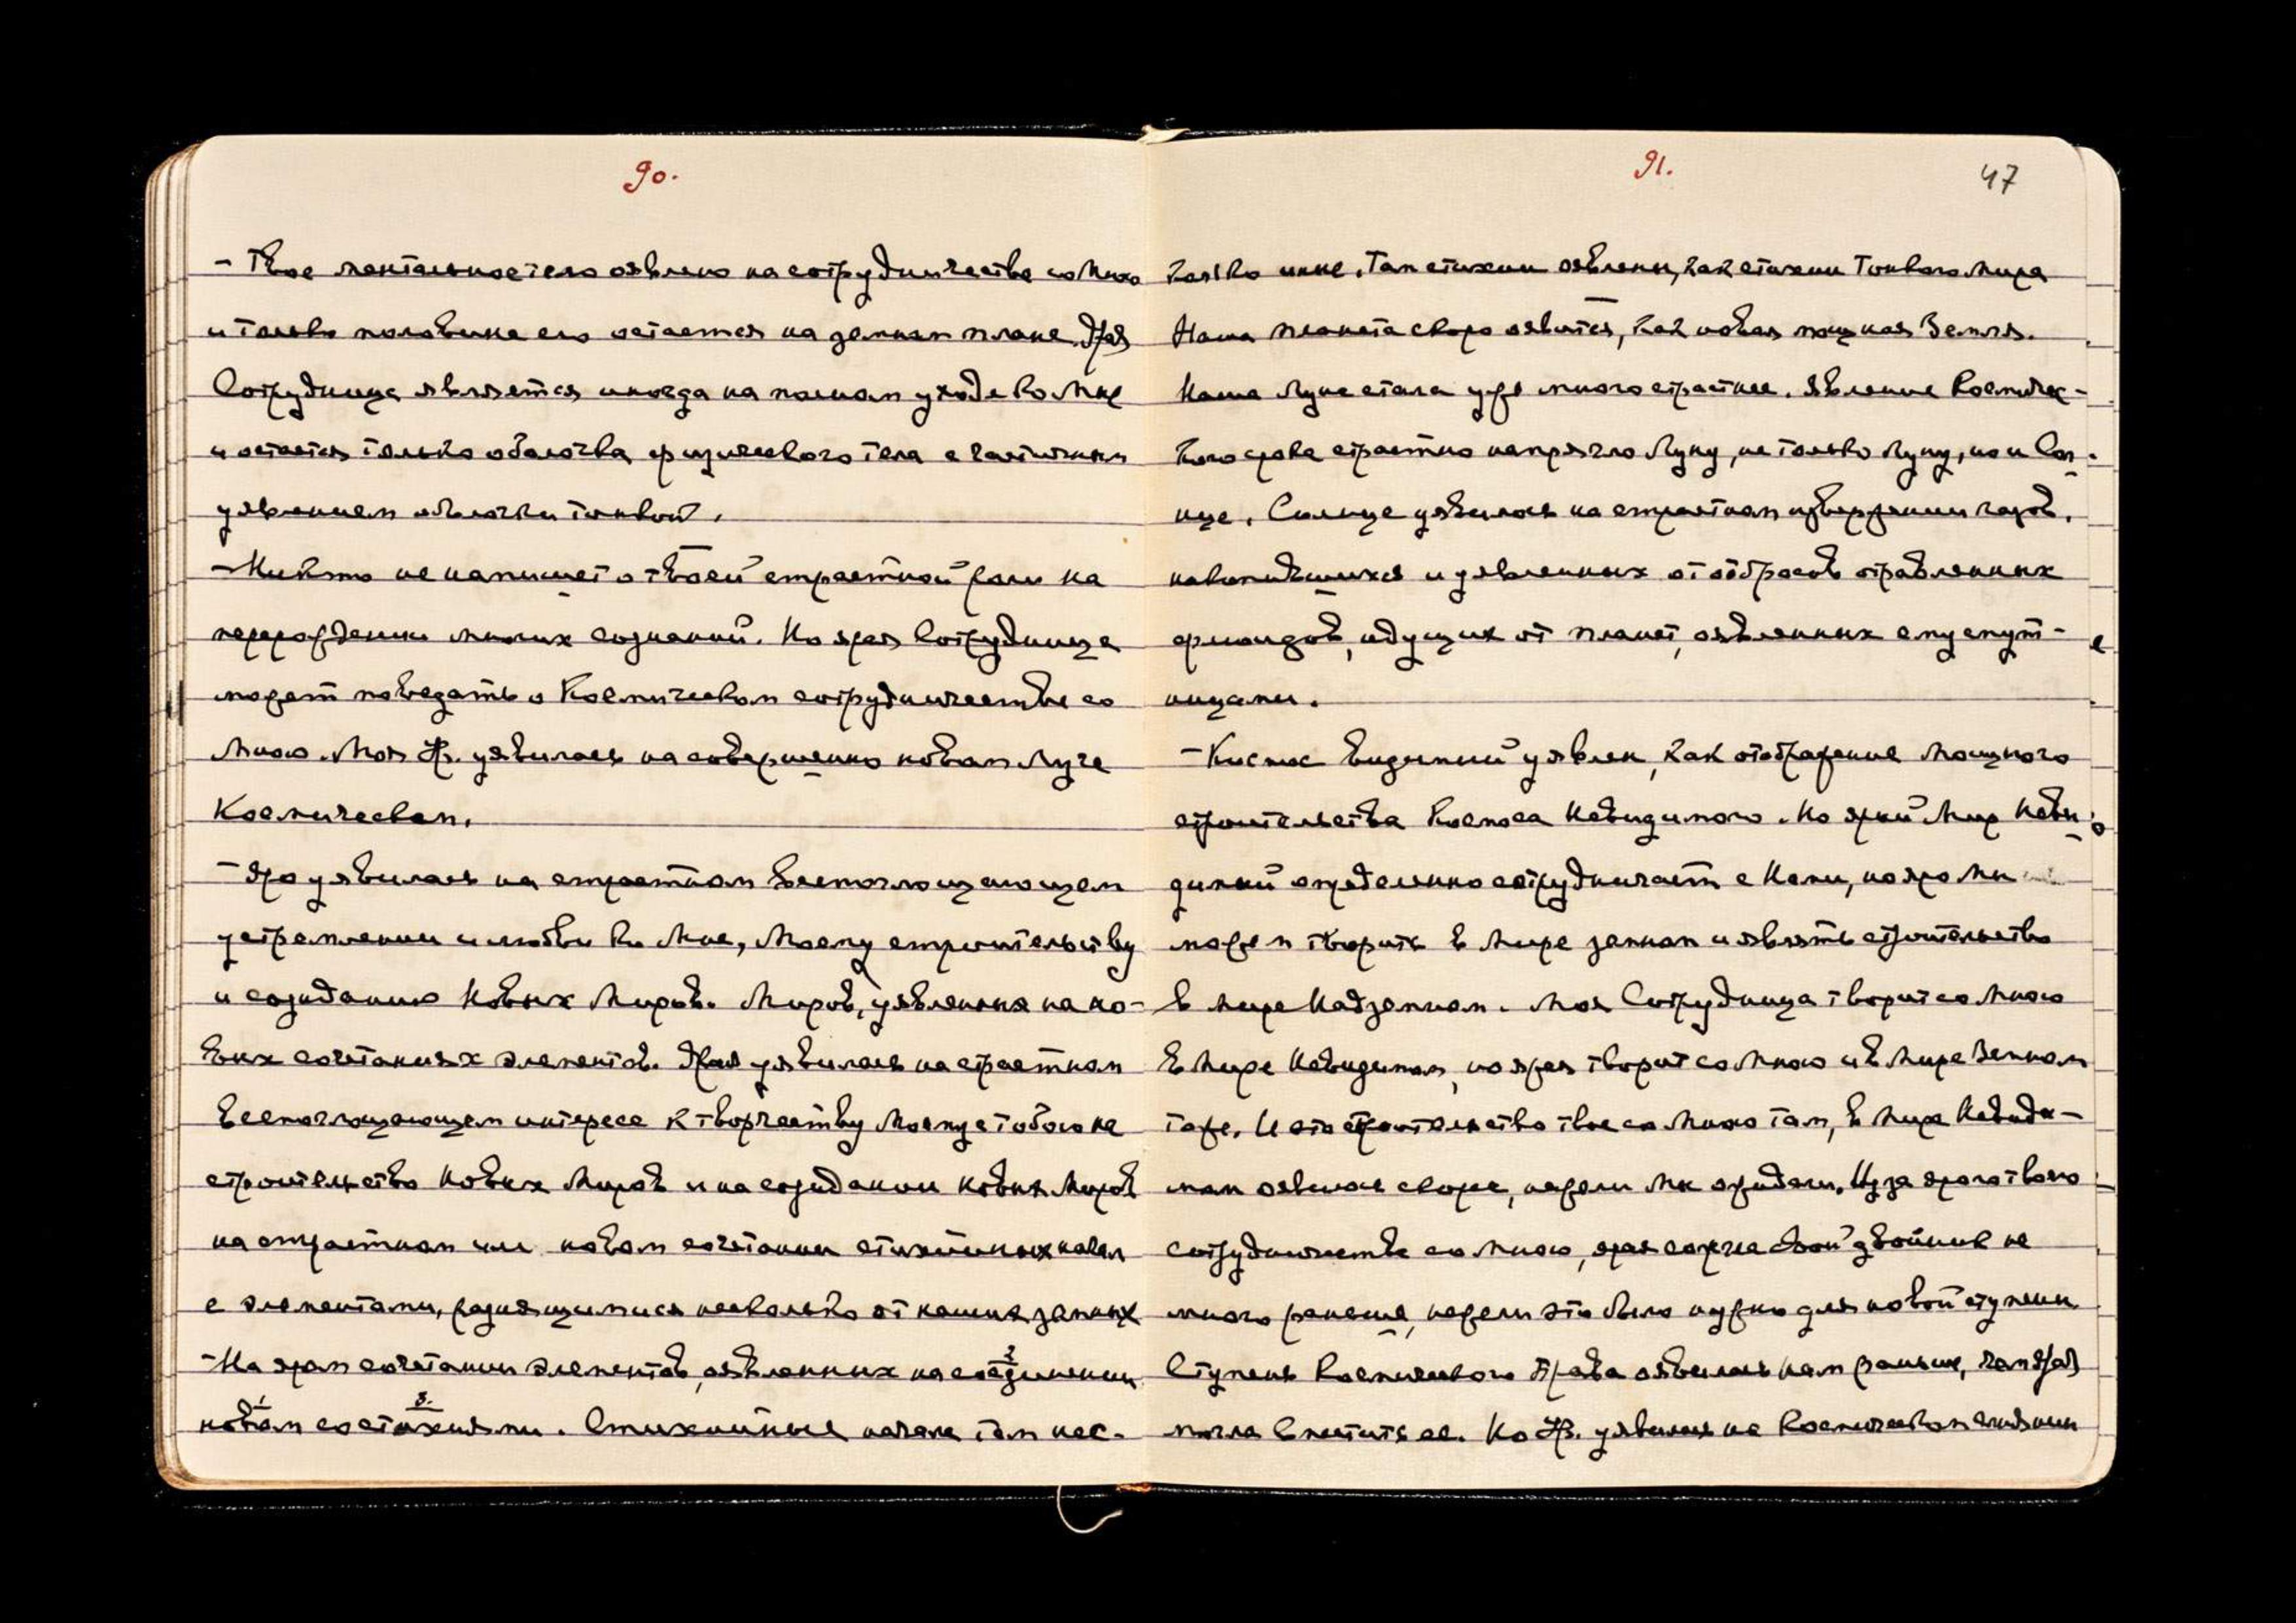 90.
- Твое ментальное тело явлено на сотрудничестве со Мною
и только половина его остается на земном плане. Ярая
Сотрудница является иногда на полном уходе ко Мне
и остается только оболочка физического тела с частичным
уявлением оболочки тонкой.
- Никто не напишет о твоей страстной роли на
перерождении многих сознаний. Но ярая Сотрудница
может поведать о Космическом сотрудничестве со
Мною. Моя Яр. уявилась на совершенно новом Луче
Космическом.
- Яро уявилась на страстном всепоглощающем
устремлении и любви ко Мне, Моему строительству
и созиданию Новых Миров. Миров, уявленных на но-
вых сочетаниях элементов. Ярая уявилась на страстном
всепоглощающем интересе к творчеству Моему с тобою на
строительство Новых Миров и на созидании Новых Миров
на страстном новом сочетании стихийных
с элементами, разнящимися несколько от наших земных
- На яром сочетании элементов, явленных на соединении
новом со стихиями. Стихийные начала там нес-
91.
47
колько иные. Там стихии явлены, как стихии Тонкого Мира
Наша планета скоро явится, как новая мощная Земля.
Наша Луна стала уже много страстнее. Явление Космичес-
кого срока страстно напрягло Луну, не только Луну, но и Сол-
нце. Солнце уявилось на страстном извержении газов,
накопившихся и уявленных от отбросов отравленных
флюидов, идущих от планет, явленных ему спут-
ницами.
- Космос Видимый уявлен, как отображение мощного
строительства Космоса Невидимого. Но яркий Мир Неви-
димый определенно сотрудничает с Нами, но яро Мы
можем творить в Мире земном и являть строительство
в Мире Надземном. Моя Сотрудница творит со Мною
в Мире Невидимом, но ярая творит со Мною и в Мире Земном
тоже. И это строительство твое со Мною там, в Мире Невиди-
мом явилось скорее, нежели Мы ожидали. Из-за ярого твоего
сотрудничества со Мною, ярая сожгла свой двойник на
много раньше, нежели это было нужно для новой ступени
Ступень Космического Права явилась нам раньше, чем Ярая
могла вместить ее. Но Яр. уявилась на Космическом слиянии